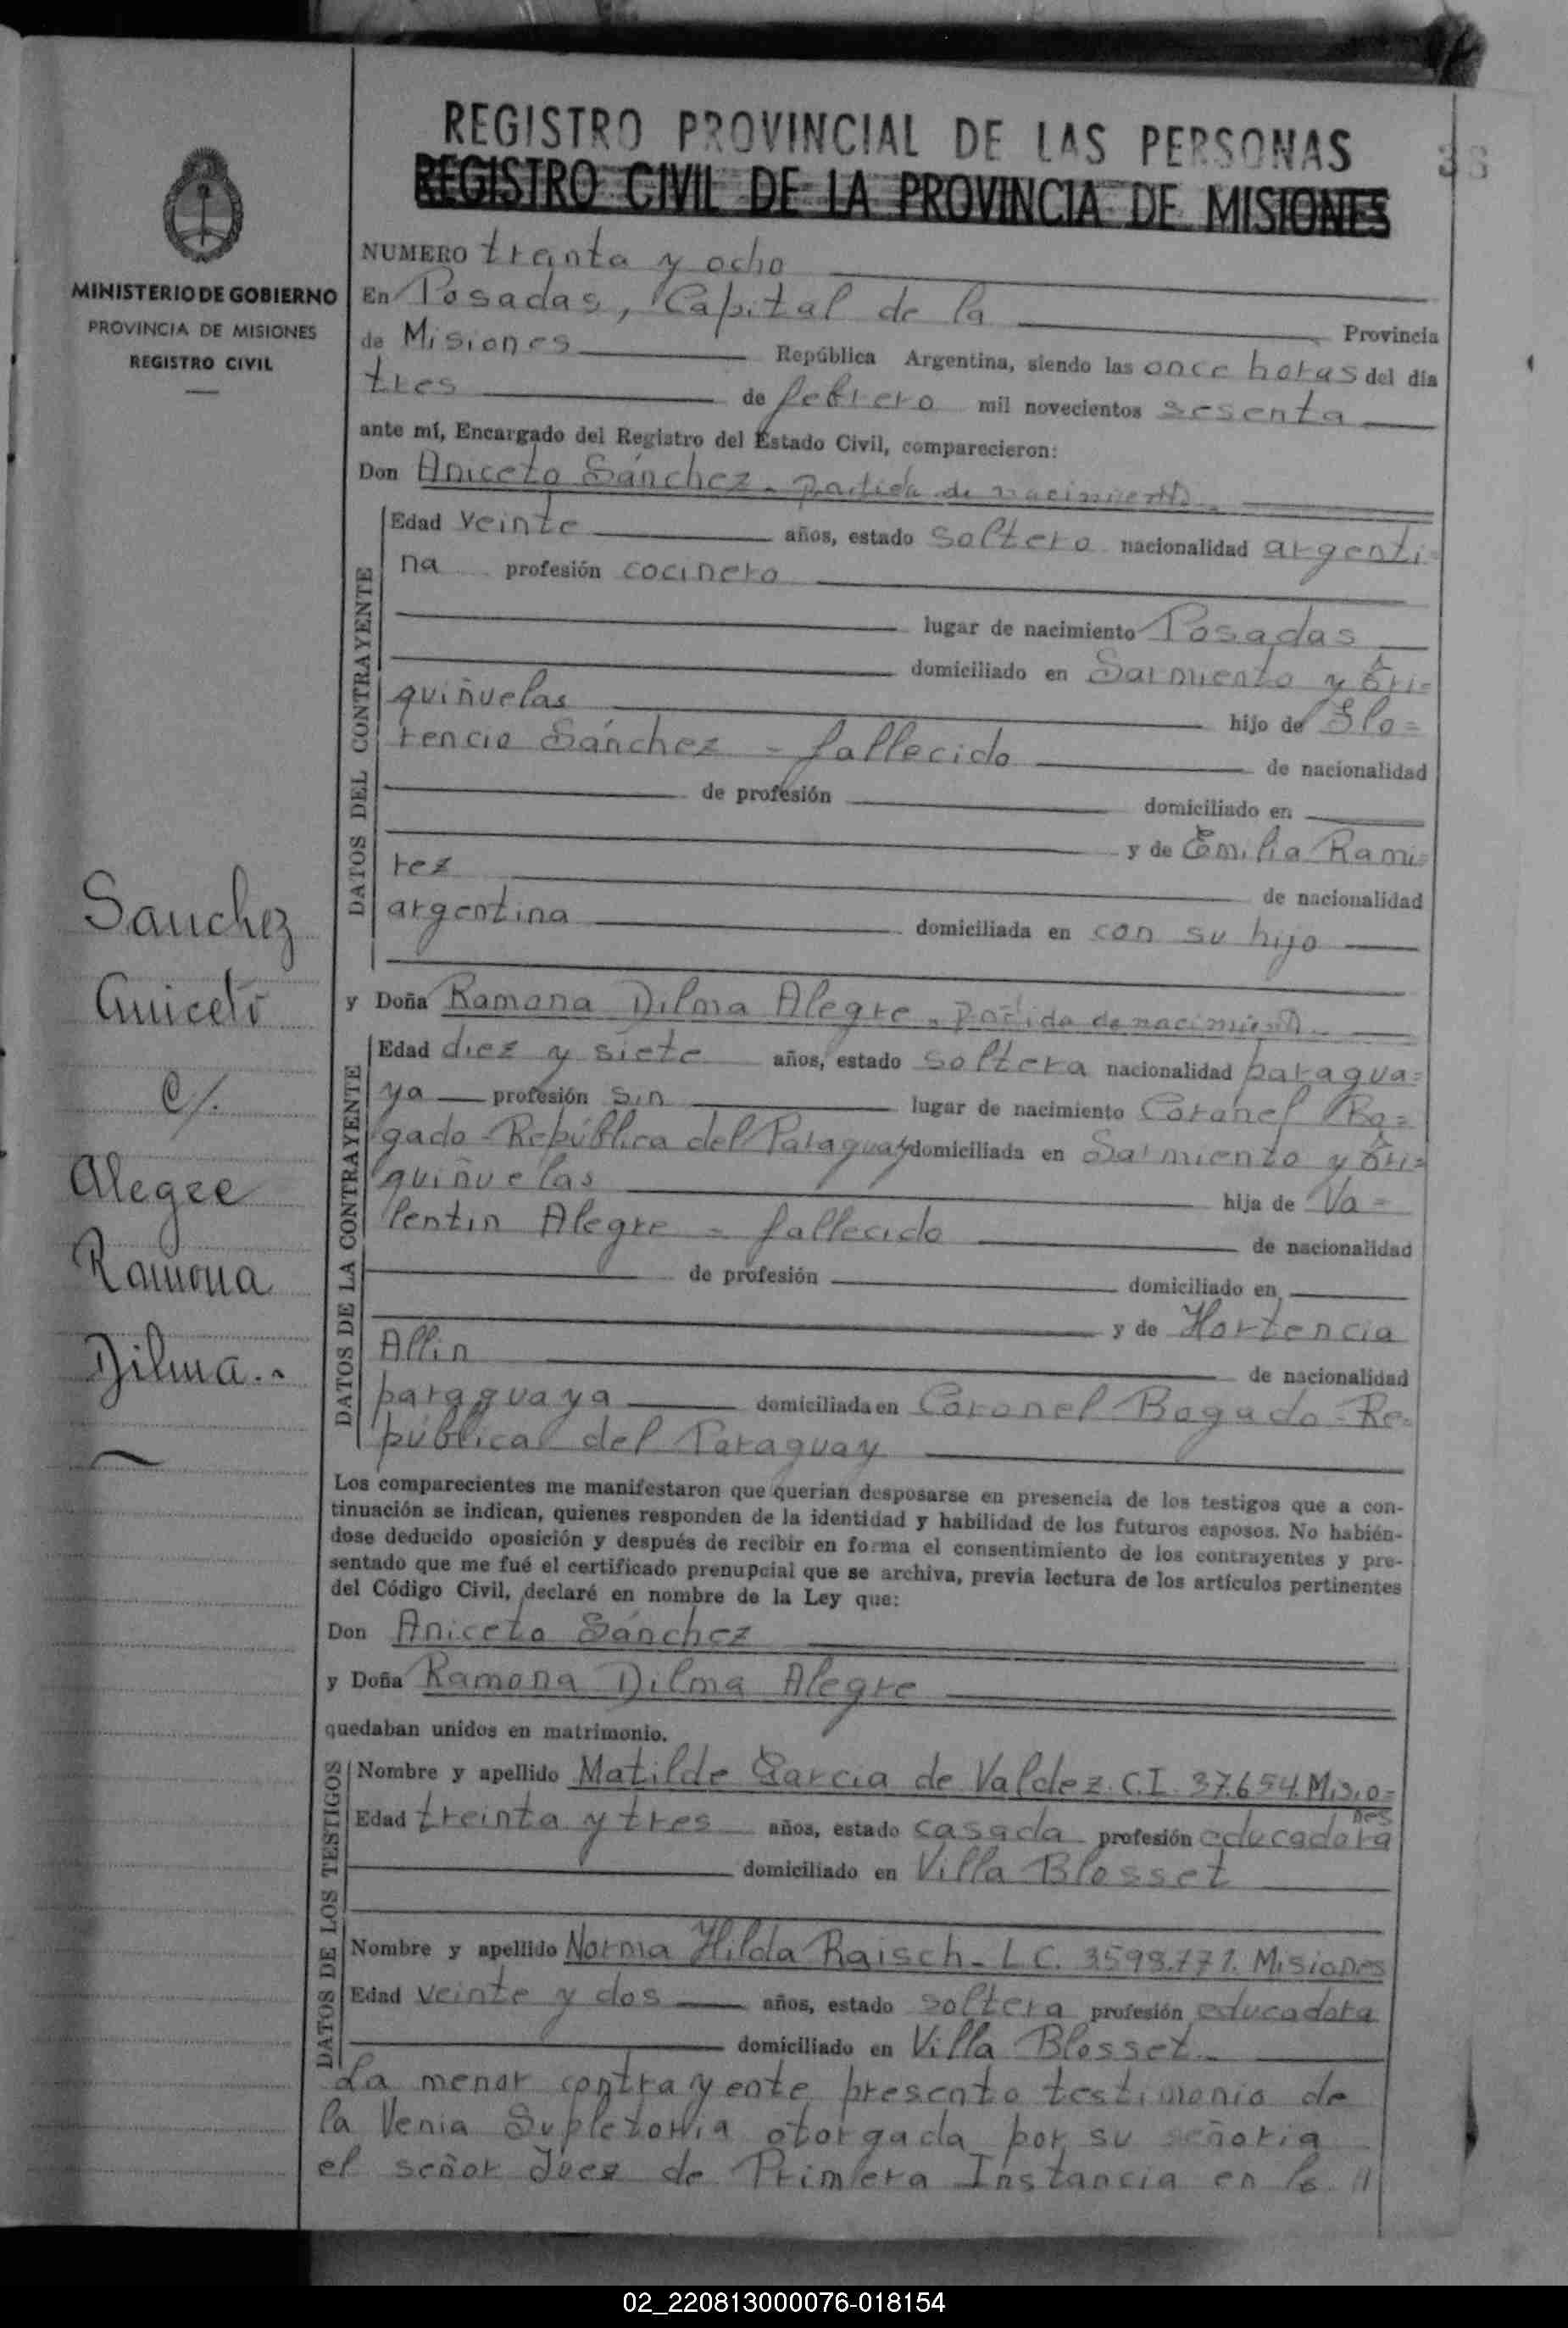 REGISTRO PROVINCIAL DE LAS PERSONAS
38
REGISTRO CIVIL DE LA PROVINCIA DE MISIONES
MINISTERIO DE GOBIERNO
PROVINCIA DE MISIONES
REGISTRO CIVIL
NUMERO treinta y ocho
En Posadas, Capital de la Provincia
de Misiones República Argentina, siendo las once horas del día
tres de febrero mil novecientos sesenta
ante mí, Encargado del Registro del Estado Civil, comparecieron:
Don Aniceto Sánchez - partida de nacimiento.
DATOS DEL CONTRAYENTE
Edad veinte años, estado soltero nacionalidad argenti=
na profesión cocinero
lugar de nacimiento Posadas
domiciliado en Sarmiento y Ari=
quiñuelas hijo de Flo=
rencio Sánchez = fallecido de nacionalidad
de profesión domiciliado en
y de Emilia Rami=
rez de nacionalidad
argentina domiciliada en con su hijo
y Doña Ramona Dilma Alegre - partida de nacimiento.
DATOS DE LA CONTRAYENTE
Edad diez y siete años, estado soltera nacionalidad paragua=
ya profesión sin lugar de nacimiento Coronel Bo=
gado - República del Paraguay domiciliada en Sarmiento y Ari=
quiñuelas hija de Va=
lentin Alegre = fallecido de nacionalidad
de profesión domiciliado en
y de Hortencia
Allin de nacionalidad
paraguaya domiciliada en Coronel Bogado - Re=
pública del Paraguay
Sanchez
Aniceto
c/.
Alegre
Ramona
Dilma.-
Los comparecientes me manifestaron que querían desposarse en presencia de los testigos que a con-
tinuación se indican, quienes responden de la identidad y habilidad de los futuros esposos. No habién-
dose deducido oposición y después de recibir en forma el consentimiento de los contrayentes y pre-
sentado que me fué el certificado prenupcial que se archiva, previa lectura de los artículos pertinentes
del Código Civil, declaré en nombre de la Ley que:
Don Aniceto Sánchez
y Doña Ramona Dilma Alegre
quedaban unidos en matrimonio.
DATOS DE LOS TESTIGOS
Nombre y apellido Matilde Garcia de Valdez. C.I. 37.654. Misio=
nes
Edad treinta y tres años, estado casada profesión educadora
domiciliado en Villa Blosset
Nombre y apellido Norma Hilda Raisch - L.C. 3598.771. Misiones
Edad veinte y dos años, estado soltera profesión educadora
domiciliado en Villa Blosset.
La menor contrayente presento testimonio de
la Venia Supletoria otorgada por su señoria
el señor Juez de Primera Instancia en lo //
02_220813000076-018154